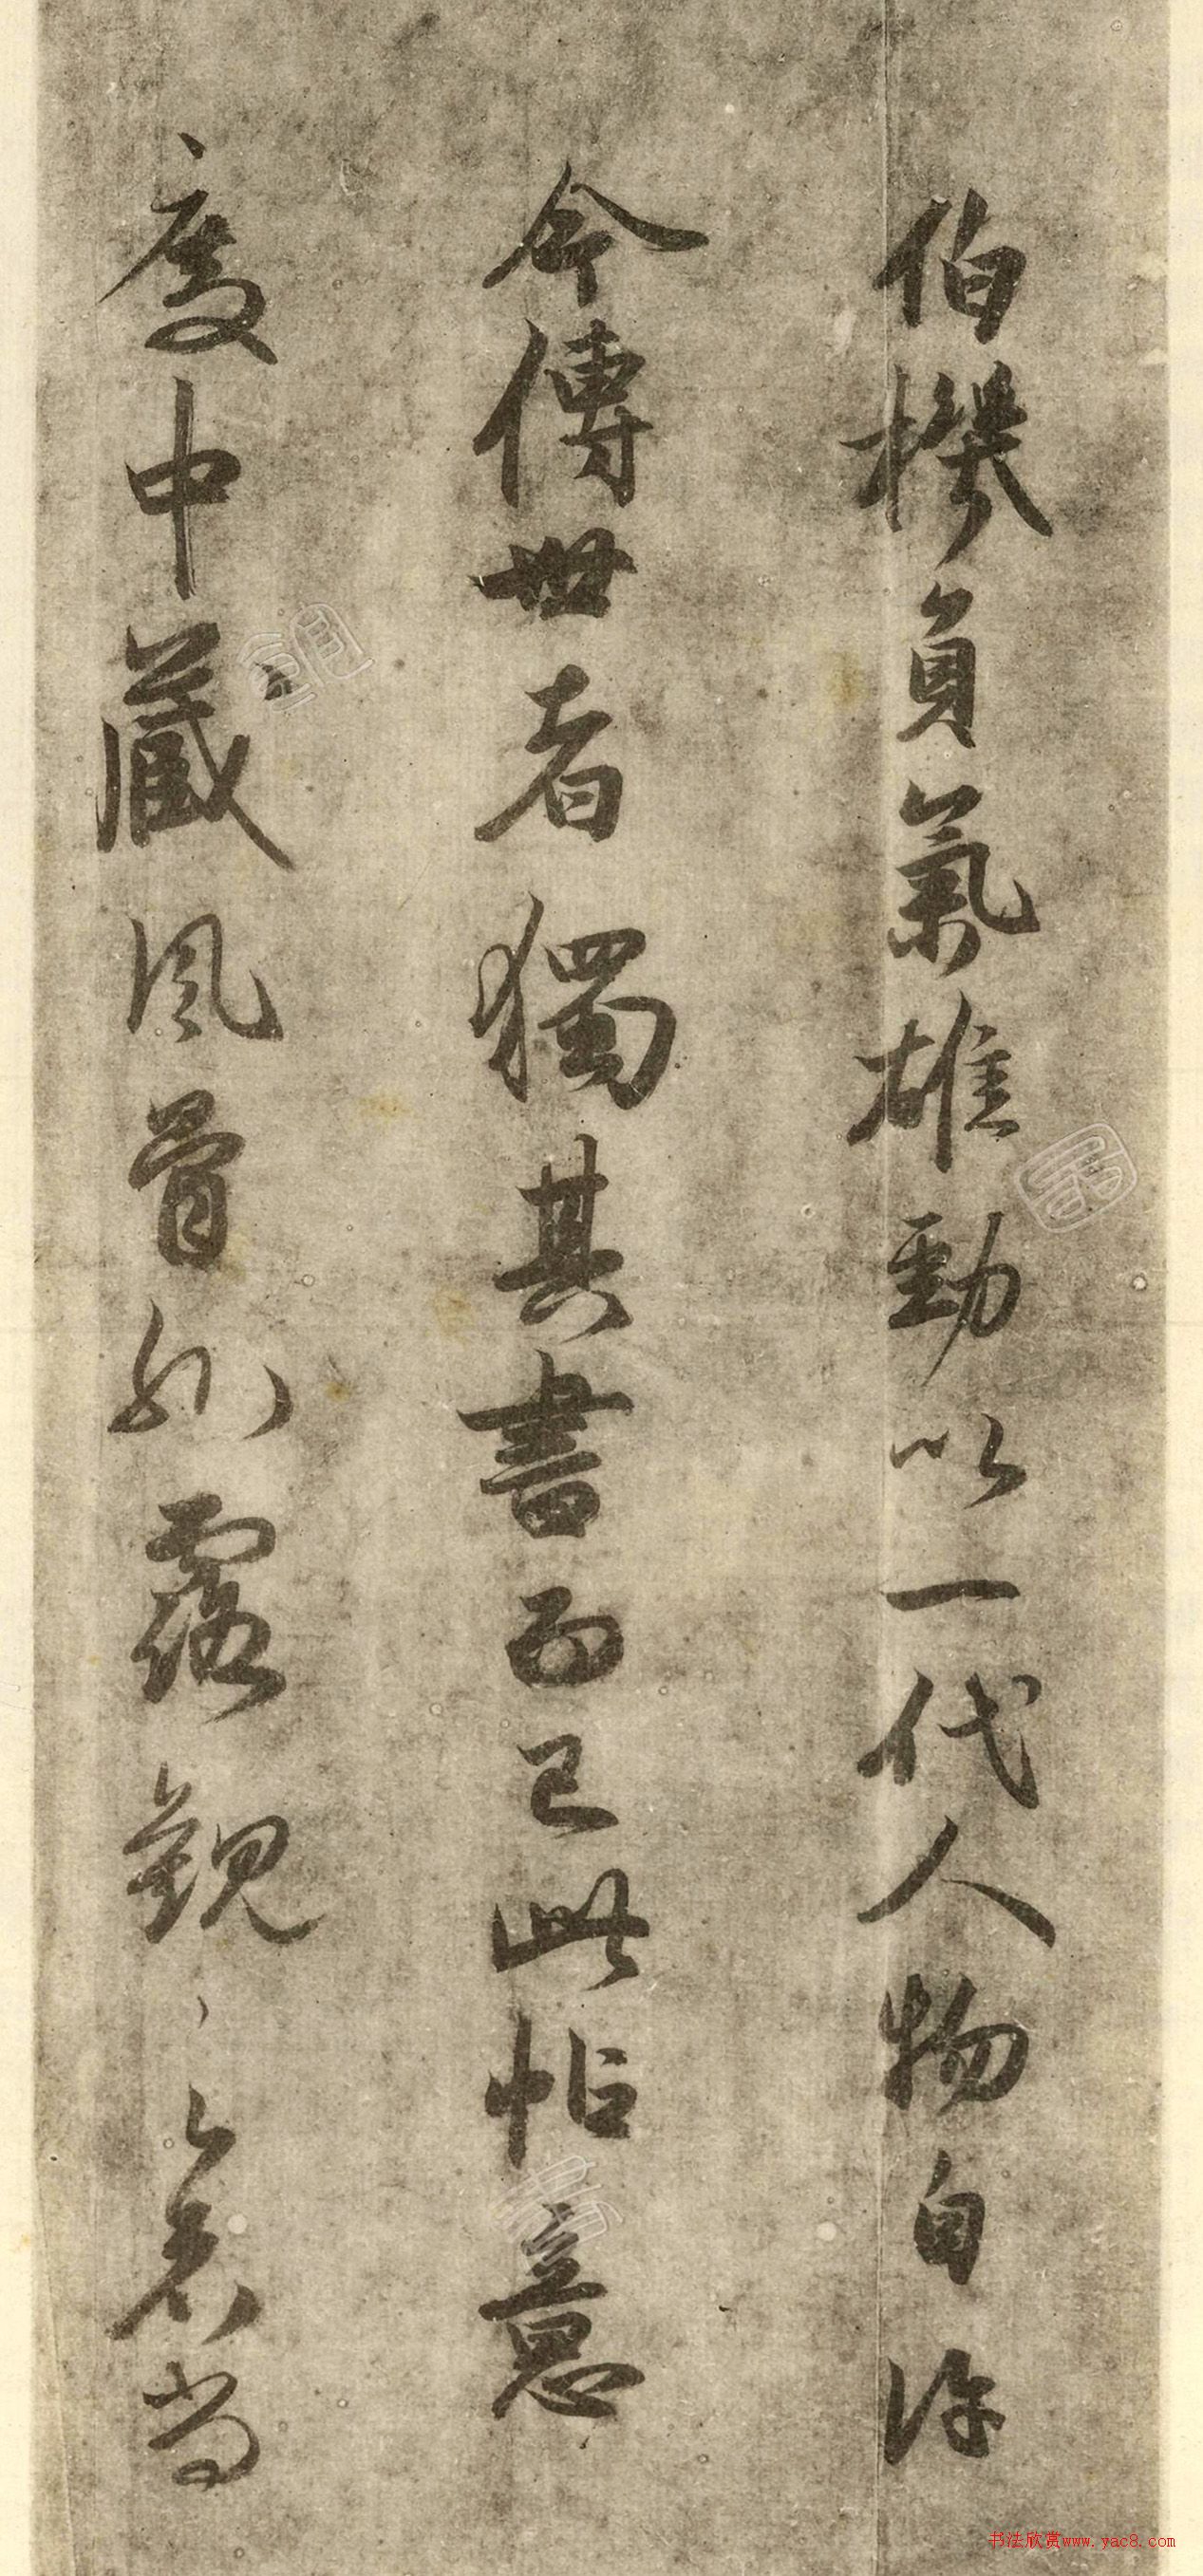 伯機負氣雄勁以一代人物自許
今傳世者獨其書而已此帖意
度中藏風骨外露觀之者當
书法欣赏www.yac8.com